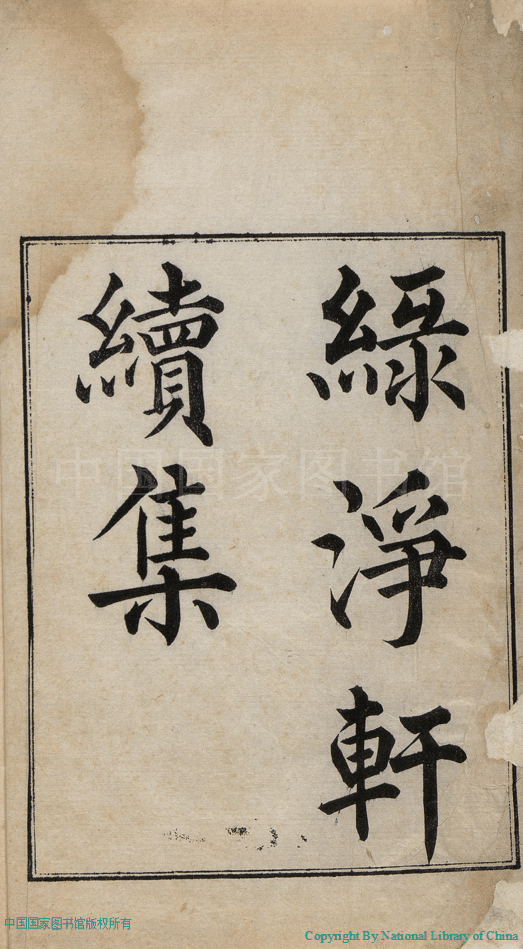 綠淨軒
續集
中国国家图书馆
中国国家图书馆版权所有
Copyright By National Library of China